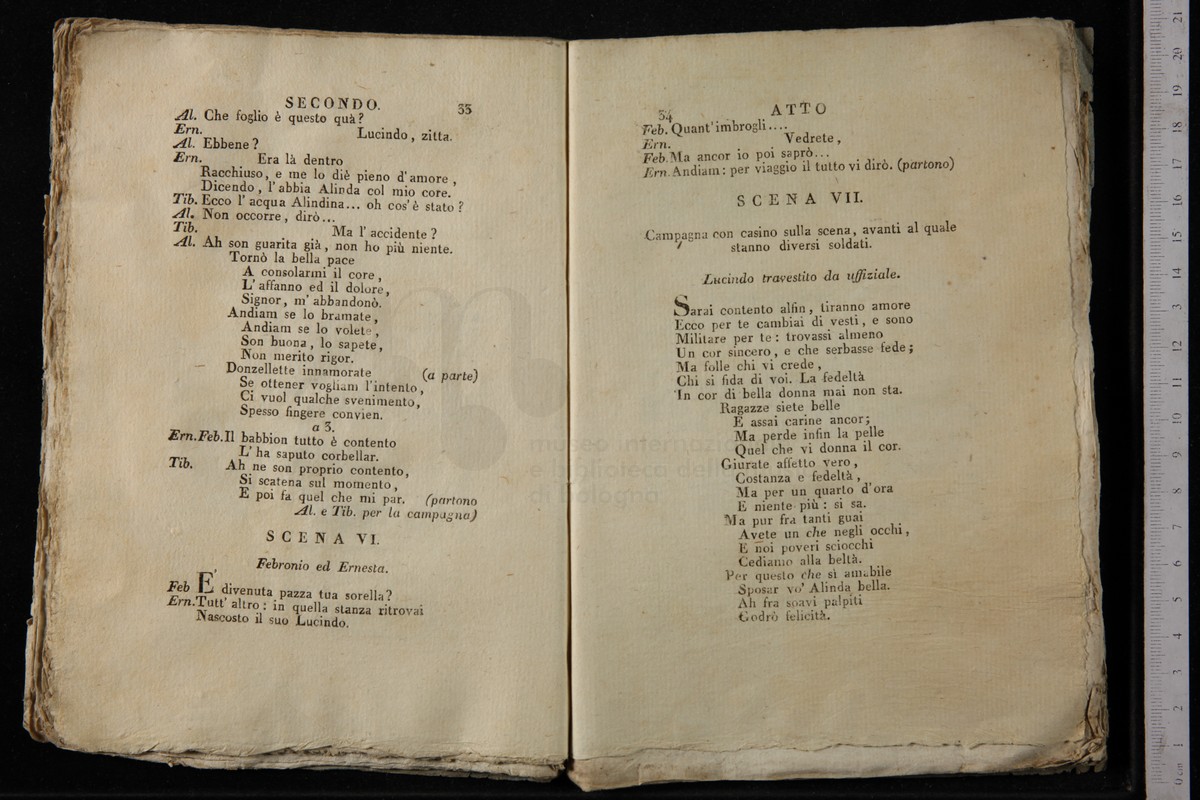 SECONDO. 33
Al. Che foglio è questo quà?
Ern. Lucindo, zitta.
Al. Ebbene?
Ern. Era là dentro
Racchiuso, e me lo diè pieno d'amore,
Dicendo, l'abbia Alinda col mio core.
Tib. Ecco l'acqua Alindina... oh cos'è stato?
Al. Non occorre, dirò...
Tib. Ma l'accidente?
Al. Ah son guarita già, non ho più niente.
Tornò la bella pace
A consolarmi il core,
L'affanno ed il dolore,
Signor, m'abbandonò.
Andiam se lo bramate,
Andiam se lo volete,
Son buona, lo sapete,
Non merito rigor.
Donzellette innamorate (a parte)
Se ottener vogliam l'intento,
Ci vuol qualche svenimento,
Spesso fingere convien.
a 3.
Ern.Feb.Il babbion tutto è contento
L'ha saputo corbellar.
Tib. Ah ne son proprio contento,
Si scatena sul momento,
E poi fa quel che mi par. (partono
Al. e Tib. per la campagna)
SCENA VI.
Febronio ed Ernesta.
Feb E' divenuta pazza tua sorella?
Ern.Tutt'altro: in quella stanza ritrovai
Nascosto il suo Lucindo.
34 ATTO
Feb. Quant'imbrogli....
Ern. Vedrete,
Feb.Ma ancor io poi saprò...
Ern.Andiam: per viaggio il tutto vi dirò. (partono)
SCENA VII.
Campagna con casino sulla scena, avanti al quale
stanno diversi soldati.
Lucindo travestito da uffiziale.
Sarai contento alfin, tiranno amore
Ecco per te cambiai di vesti, e sono
Militare per te: trovassi almeno
Un cor sincero, e che serbasse fede;
Ma folle chi vi crede,
Chi si fida di voi. La fedeltà
In cor di bella donna mai non sta.
Ragazze siete belle
E assai carine ancor;
Ma perde infin la pelle
Quel che vi donna il cor.
Giurate affetto vero,
Costanza e fedeltà,
Ma per un quarto d'ora
E niente più: si sa.
Ma pur fra tanti guai
Avete un che negli occhi,
E noi poveri sciocchi
Cediamo alla beltà.
Per questo che sì amabile
Sposar vo' Alinda bella.
Ah fra soavi palpiti
Godrò felicità.
museo internazio
e biblioteca del
di Bologna